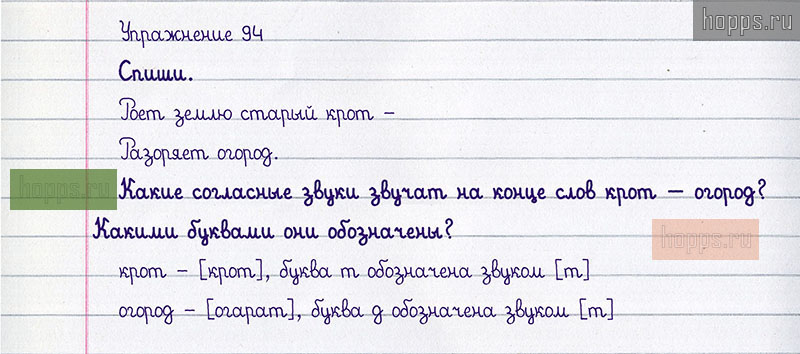 hopps.ru
Упражнение 94
Спиши.
Роет землю старый крот –
Разоряет огород.
hopps.ru
Какие согласные звуки звучат на конце слов крот – огород?
Какими буквами они обозначены?
hopps.ru
крот – [крот], буква т обозначена звуком [т]
огород – [огарат], буква д обозначена звуком [т]